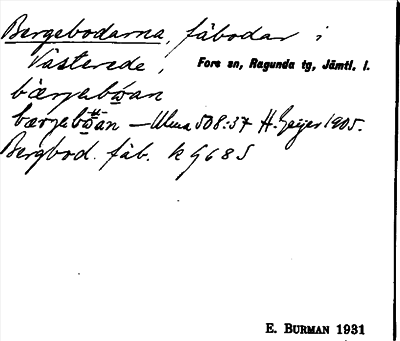 Bergebodarna, fäbodar i
Västerede, Fors sn, Ragunda tg, Jämtl. l.
bærjebωan
bærjebωan — Ulma 508:37 H. Geijer 1905.
Bergbod. fäb. k G68S
E. BURMAN 1931